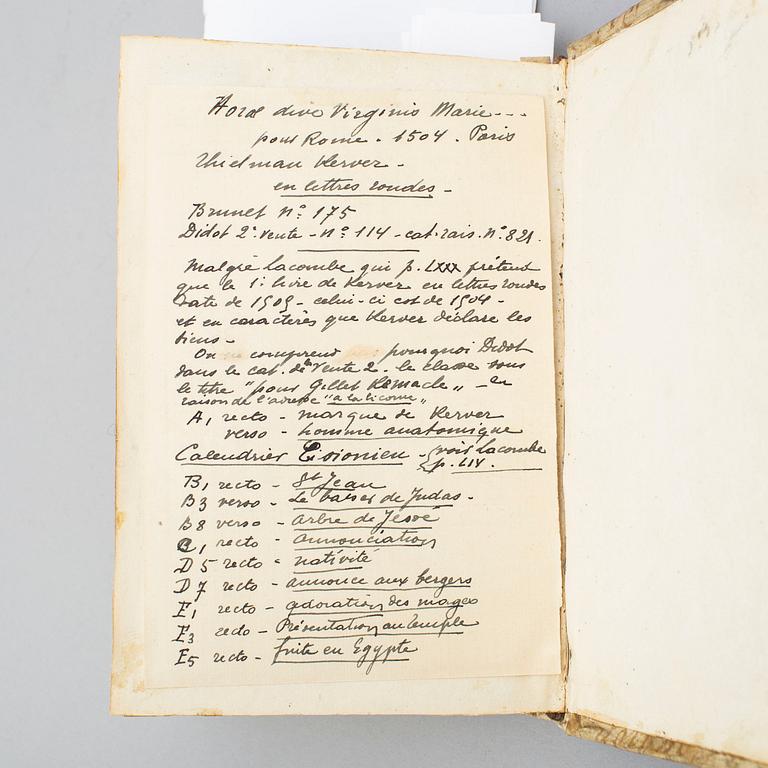 Horae dive Virginis Marie - - -
pour Rome . 1504 . Paris
Thielman Kerver -
en lettres rondes -
Brunet n° 175
Didot 2e vente - n° 114 - cat. rais. n° 821.
Malgré Lacombe qui p. LXXX prétend
que le 1er livre de Kerver en lettres rondes
date de 1505 - celui-ci est de 1504 -
et en caractères que Kerver déclare les
siens -
On comprend pourquoi Didot
dans le cat. de la vente 2e le classe sous
le titre "pour Gillet Remacle" - en
raison de l'adresse "a la licorne"
A1 recto - marque de Kerver
verso - homme anatomique
Calendrier Cisionien - (voir Lacombe
p. LIV.
B1 recto - St Jean
B3 verso - Le baiser de Judas -
B8 verso - arbre de Jessé
C1 recto - annonciation
D5 recto - nativité
D7 recto - annonce aux bergers
E1 recto - adoration des mages
E3 recto - Présentation au temple
E5 recto - fuite en Egypte